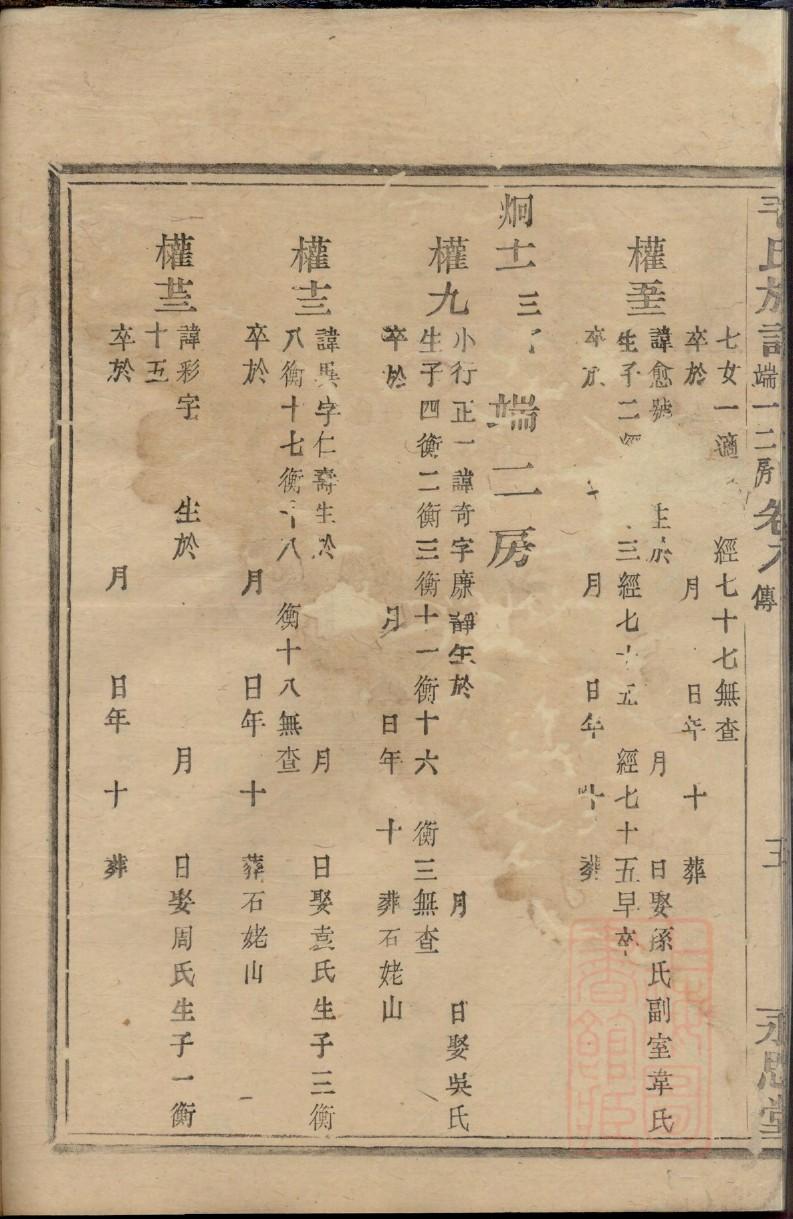 氏族譜 端一二房 卷 傳 五 永思堂
七女一適 經七十七無查
卒於 月 日年 十 葬
權 諱愈號 生於 月 日娶孫氏副室韋氏
生子二經 三經七十五 經七十五早卒
卒於 月 日年 十 葬
炯 三子 端二房
權九 小行正一諱奇字廉靜生於 月 日娶吳氏
生子四衡二衡三衡十一衡十六 衡三無查
卒於 月 日年 十 葬石姥山
權 諱 字仁壽生於 月 日娶袁氏生子三衡
八衡十七衡十八 衡十八無查
卒於 月 日年 十 葬石姥山
權 諱彩字 生於 月 日娶周氏生子一衡
十五
卒於 月 日年 十 葬